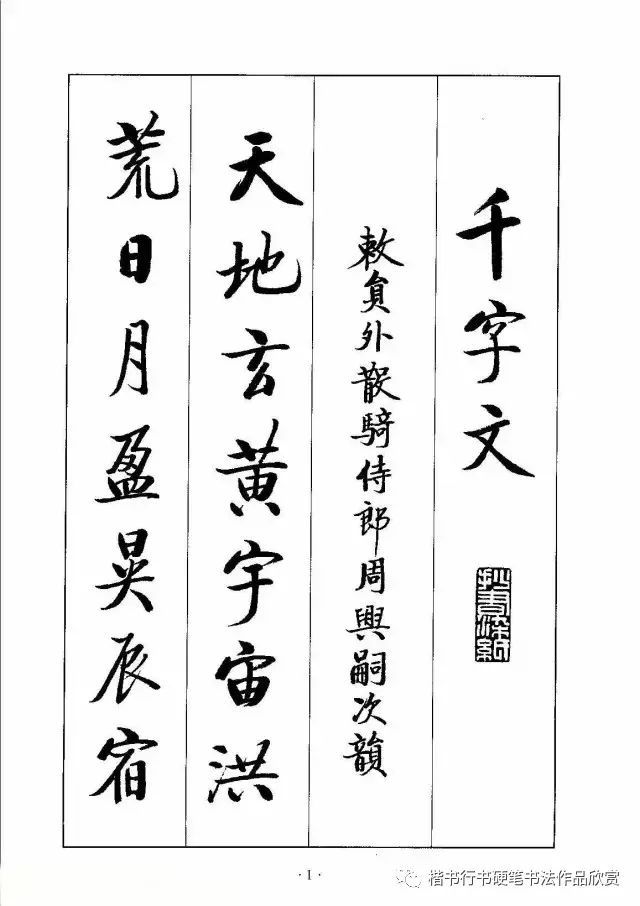 千字文
敕員外散騎侍郎周興嗣次韻
天地玄黄宇宙洪
荒日月盈昃辰宿
·1·
楷书行书硬笔书法作品欣赏